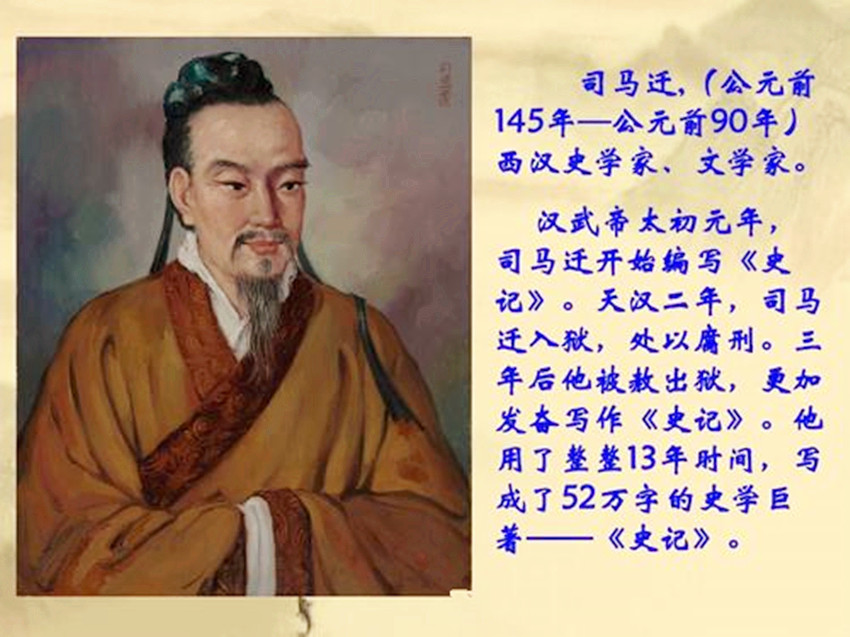 司马迁,（公元前
145年—公元前90年）
西汉史学家、文学家。
汉武帝太初元年，
司马迁开始编写《史
记》。天汉二年，司马
迁入狱，处以腐刑。三
年后他被赦出狱，更加
发奋写作《史记》。他
用了整整13年时间，写
成了52万字的史学巨
著——《史记》。